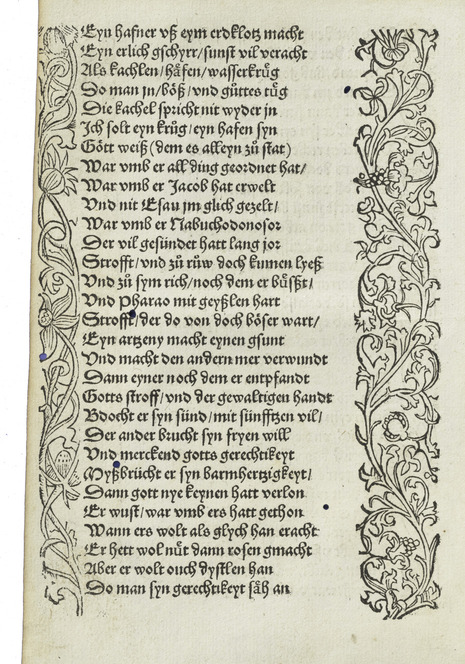 Eyn hafner vß eym erdklotz macht
Eyn erlich gschyrr/sunst vil veracht
Als kachlen/häfen/wasserkrůg
Do man jn/böß/vnd gůttes tůg
Die kachel spricht nit wyder jn
Ich solt eyn krůg/eyn hafen syn
Gött weiß (dem es alleyn zů stat)
War vmb er all ding geordnet hat/
War vmb er Jacob hat erwelt
Vnd nit Esau jm glich gezelt/
War vmb er Nabuchodonosor
Der vil gesündet hatt lang jor
Strofft/vnd zů rüw doch kumen lyeß
Vnd zů sym rich/noch dem er bůsßt/
Vnd Pharao mit geyßlen hart
Strofft/der do von doch böser wart/
Eyn artzeny macht eynen gsunt
Vnd macht den andern mer verwundt
Dann eyner noch dem er entpfandt
Gotts stroff/vnd der gewaltigen handt
Bdocht er syn sünd/mit sünfftzen vil/
Der ander brucht syn fryen will
Vnd merckend gotts gerechtikeyt
Myßbrücht er syn barmhertzigkeyt/
Dann gott nye keynen hatt verlon
Er wust/war vmb ers hatt gethon
Wann ers wolt als glych han eracht
Er hett wol nüt dann rosen gmacht
Aber er wolt ouch dystlen han
Do man syn gerechtikeyt säh an